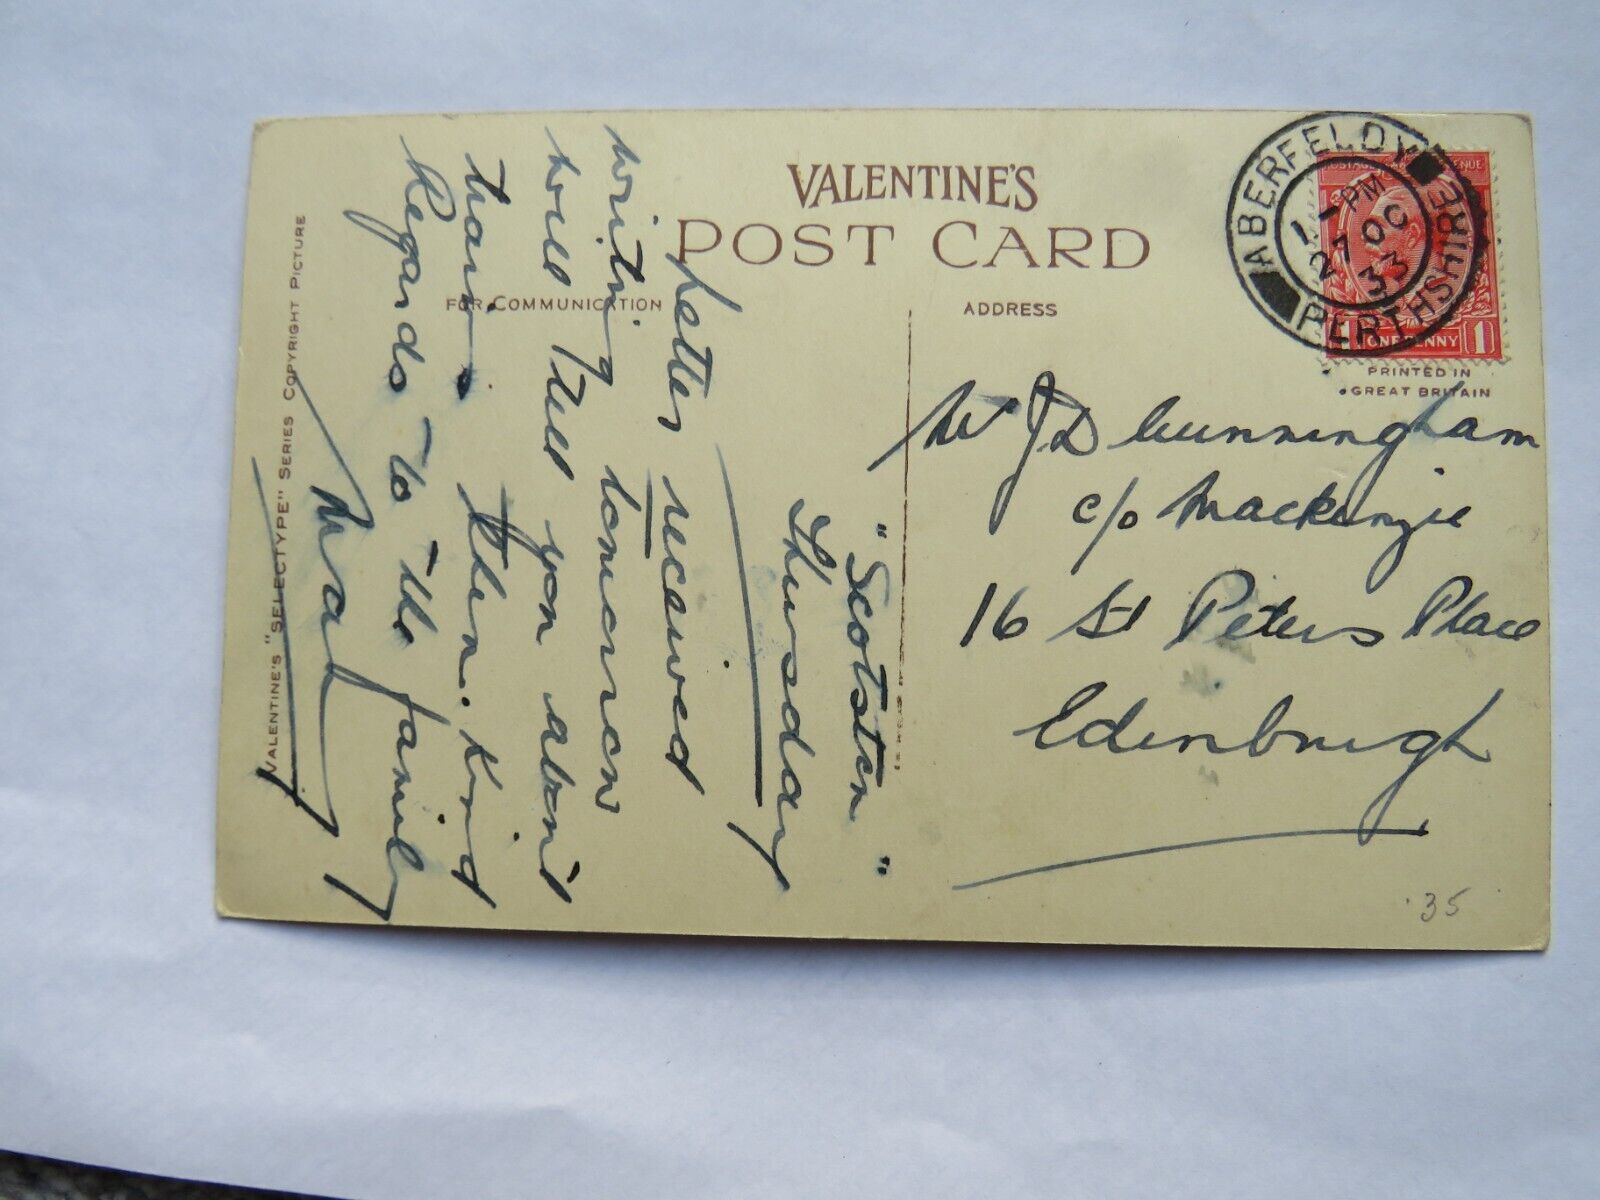 VALENTINE'S
POST CARD
FOR COMMUNICATION
ADDRESS
ABERFELDY
PERTHSHIRE
1 - PM
27 OC
33
POSTAGE REVENUE
1 ONE PENNY 1
PRINTED IN
GREAT BRITAIN
VALENTINE'S "SELECTYPE" SERIES COPYRIGHT PICTURE
Mr J D Cunningham
c/o Mackenzie
16 St Peters Place
Edinburgh
"Scotston"
Thursday
Letter received
writing tomorrow
will tell you about
then. Kind
Regards to the family
.35